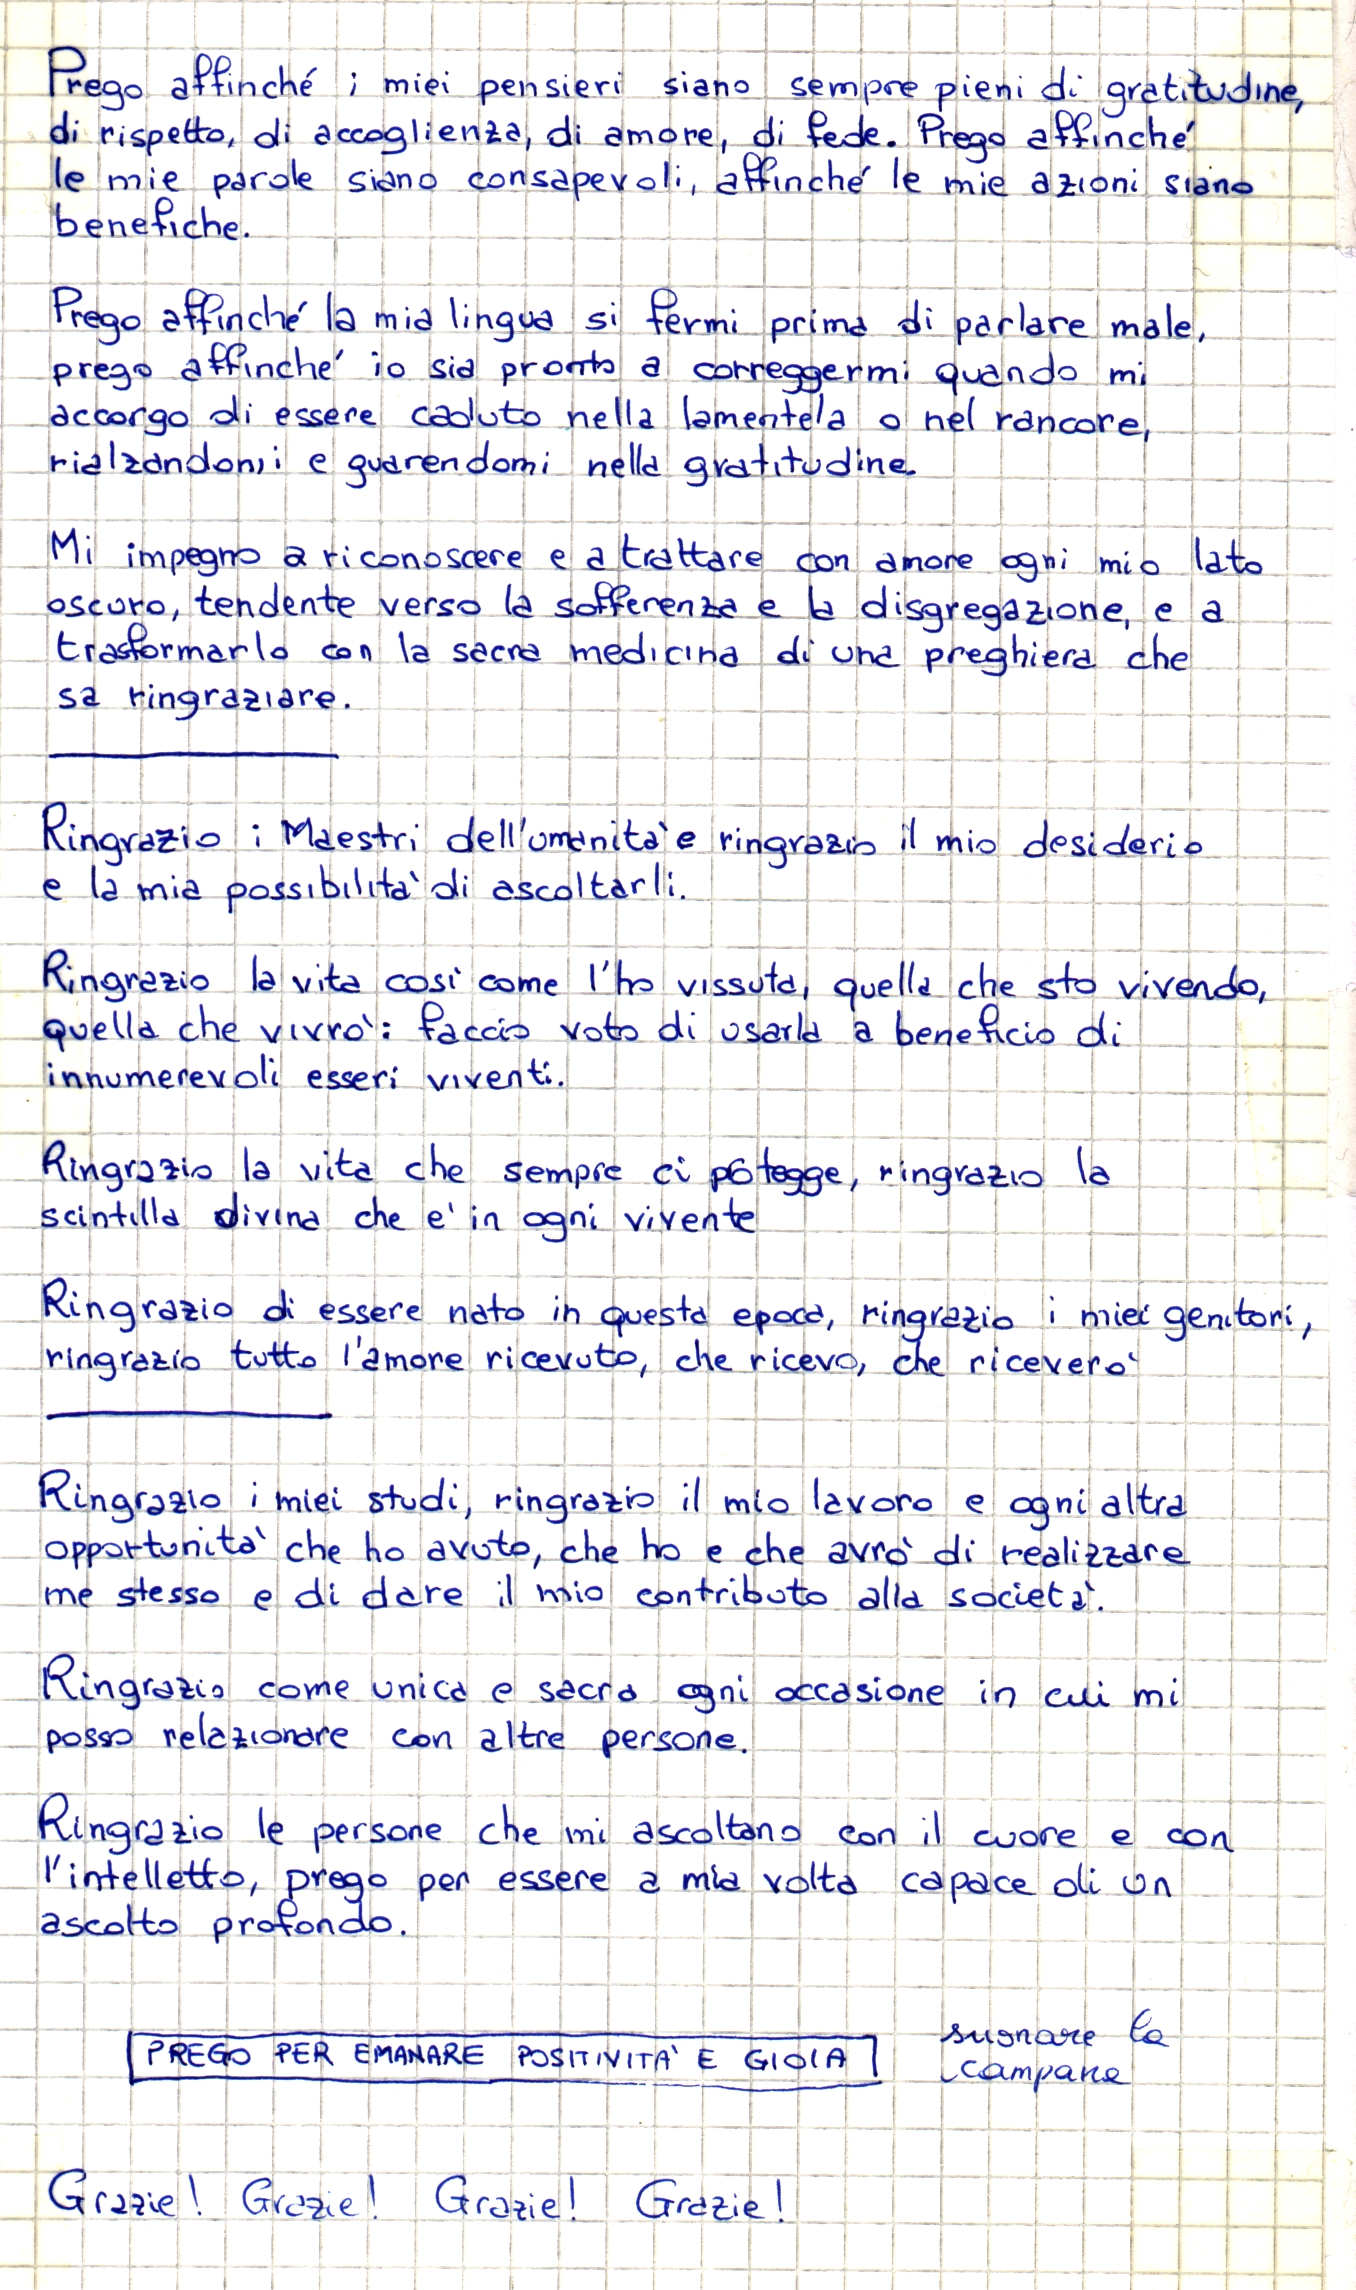 Prego affinché i miei pensieri siano sempre pieni di gratitudine,
di rispetto, di accoglienza, di amore, di fede. Prego affinché
le mie parole siano consapevoli, affinché le mie azioni siano
benefiche.
Prego affinché la mia lingua si fermi prima di parlare male,
prego affinché io sia pronto a correggermi quando mi
accorgo di essere caduto nella lamentela o nel rancore,
rialzandomi e guarendomi nella gratitudine.
Mi impegno a riconoscere e a trattare con amore ogni mio lato
oscuro, tendente verso la sofferenza e la disgregazione, e a
trasformarlo con la sacra medicina di una preghiera che
sa ringraziare.
Ringrazio i Maestri dell'umanità e ringrazio il mio desiderio
e la mia possibilità di ascoltarli.
Ringrazio la vita così come l'ho vissuta, quella che sto vivendo,
quella che vivrò: faccio voto di usarla a beneficio di
innumerevoli esseri viventi.
Ringrazio la vita che sempre ci potegge, ringrazio la
scintilla divina che e' in ogni vivente
Ringrazio di essere nato in questa epoca, ringrazio i miei genitori,
ringrazio tutto l'amore ricevuto, che ricevo, che riceverò
Ringrazio i miei studi, ringrazio il mio lavoro e ogni altra
opportunità che ho avuto, che ho e che avrò di realizzare
me stesso e di dare il mio contributo alla società.
Ringrazio come unica e sacra ogni occasione in cui mi
posso relazionare con altre persone.
Ringrazio le persone che mi ascoltano con il cuore e con
l'intelletto, prego per essere a mia volta capace di un
ascolto profondo.
PREGO PER EMANARE POSITIVITA' E GIOIA
suonare la
campana
Grazie! Grazie! Grazie! Grazie!